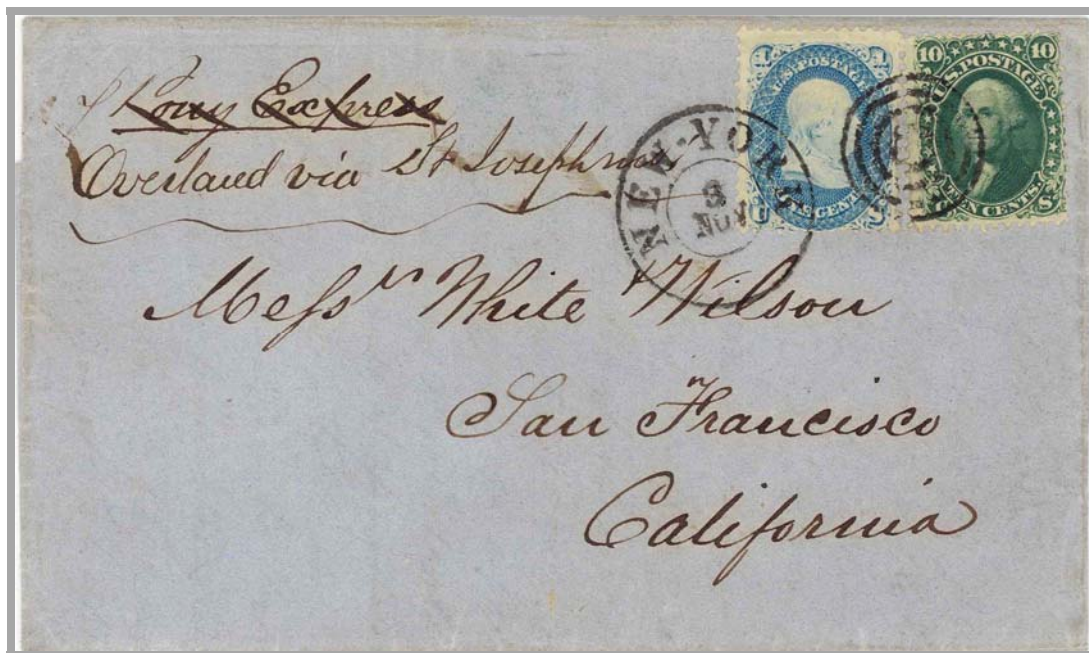 p Pony Express
Overland via St Josephmo
NEW-YORK
8
NOV
1 U.S. POSTAGE 1
U ONE CENT S
10 10
U.S. POSTAGE
U TEN CENTS S
Messrs White & Wilson
San Francisco
California